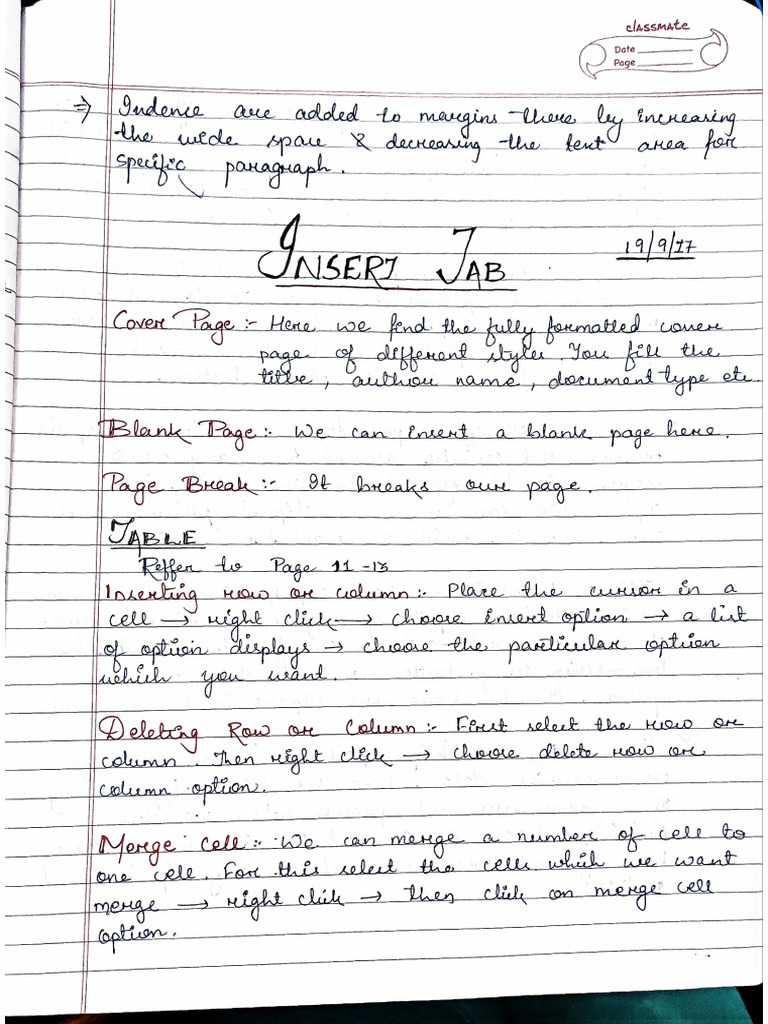 classmate
Date
Page
⇒ Indence are added to margins there by increasing
the wide space & decreasing the text area for
specific paragraph.
INSERT TAB
19/9/17
Cover Page :- Here we find the fully formatted cover
page of different styles. You fill the
title, author name, document type etc.
Blank Page :- We can insert a blank page here.
Page Break :- It breaks our page.
TABLE
Reffer to Page 11-13
Inserting row or column :- Place the cursor in a
cell → right click → choose insert option → a list
of option displays → choose the particular option
which you want.
Deleting Row or Column :- First select the row or
column. Then right click → choose delete row or
column option.
Merge Cell :- We can merge a number of cell to
one cell. For this select the cells which we want
merge → right click → then click on merge cell
option.